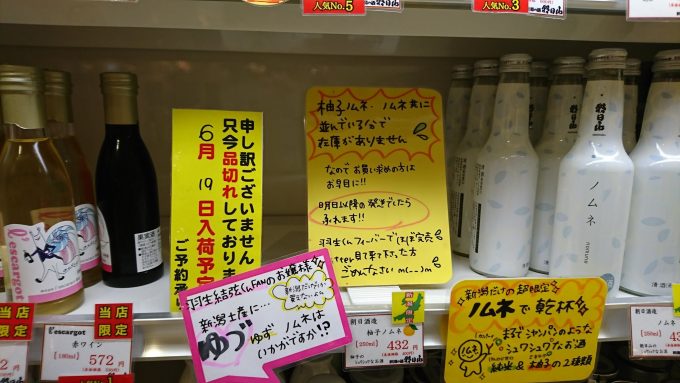 人気No.5
人気No.3
申し訳ございません
只今品切れしております
6月 19日入荷予定
ご予約承
柚子ノムネ・ノムネ共に
並んでいる分で
在庫がありません
なので お買い求めの方は
お早目に!!
明日以降の発送でしたら
ふれます!!
羽生くんフィーバーでほぼ完売
見て下さった方
ごめんなさい m(__)m
羽生結弦くんFANのお嬢様
新潟だけでしか
買えないよ
新潟土産に…
ゆづ ゆずノムネは
いかがですか!?
新潟だけの超限定
ノムネで乾杯
まるでシャンパンのような
シュワシュワなお酒
純米&柚子の2種類
ノムネ
朝日山
ノムネ
l'escargot
当店限定
l'escargot
赤ワイン
[180ml]
572円
当店限定
朝日酒造
柚子ノムネ
[250ml]
432円
朝日酒造
ノムネ
[250ml]